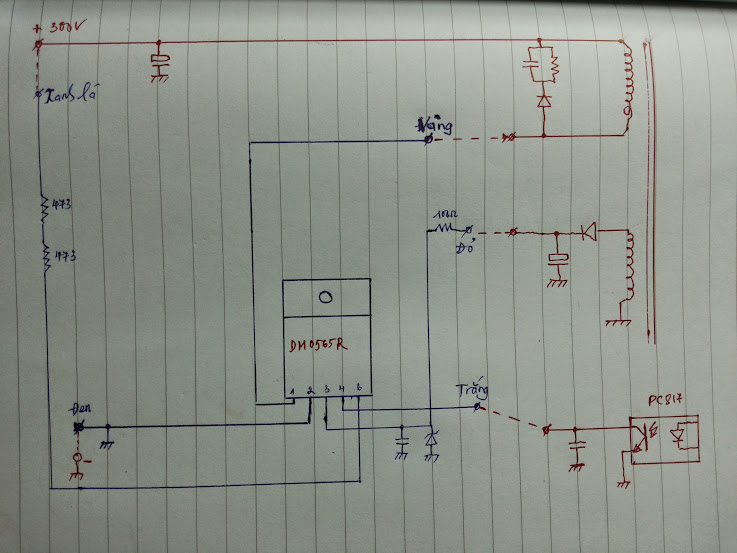 + 300V
Xanh lá
Vàng
473
10Ω
473
Đỏ
DM0565R
1 2 3 4 5
Trắng
PC817
Đen
-